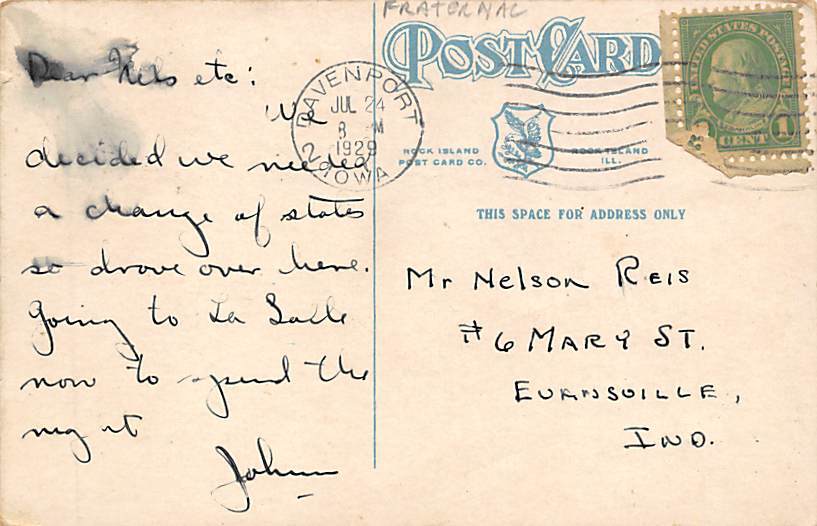 FRATERNAL
POST CARD
UNITED STATES POSTAGE
1 CENT 1
DAVENPORT
JUL 24
8 M
1929
2 IOWA
ROCK ISLAND
POST CARD CO.
ROCK ISLAND
ILL.
THIS SPACE FOR ADDRESS ONLY
Dear Nels etc:
We
decided we needed
a change of states
so drove over here.
Going to La Salle
now to spend the
night
John
Mr Nelson Reis
#6 Mary St.
Evansville,
Ind.